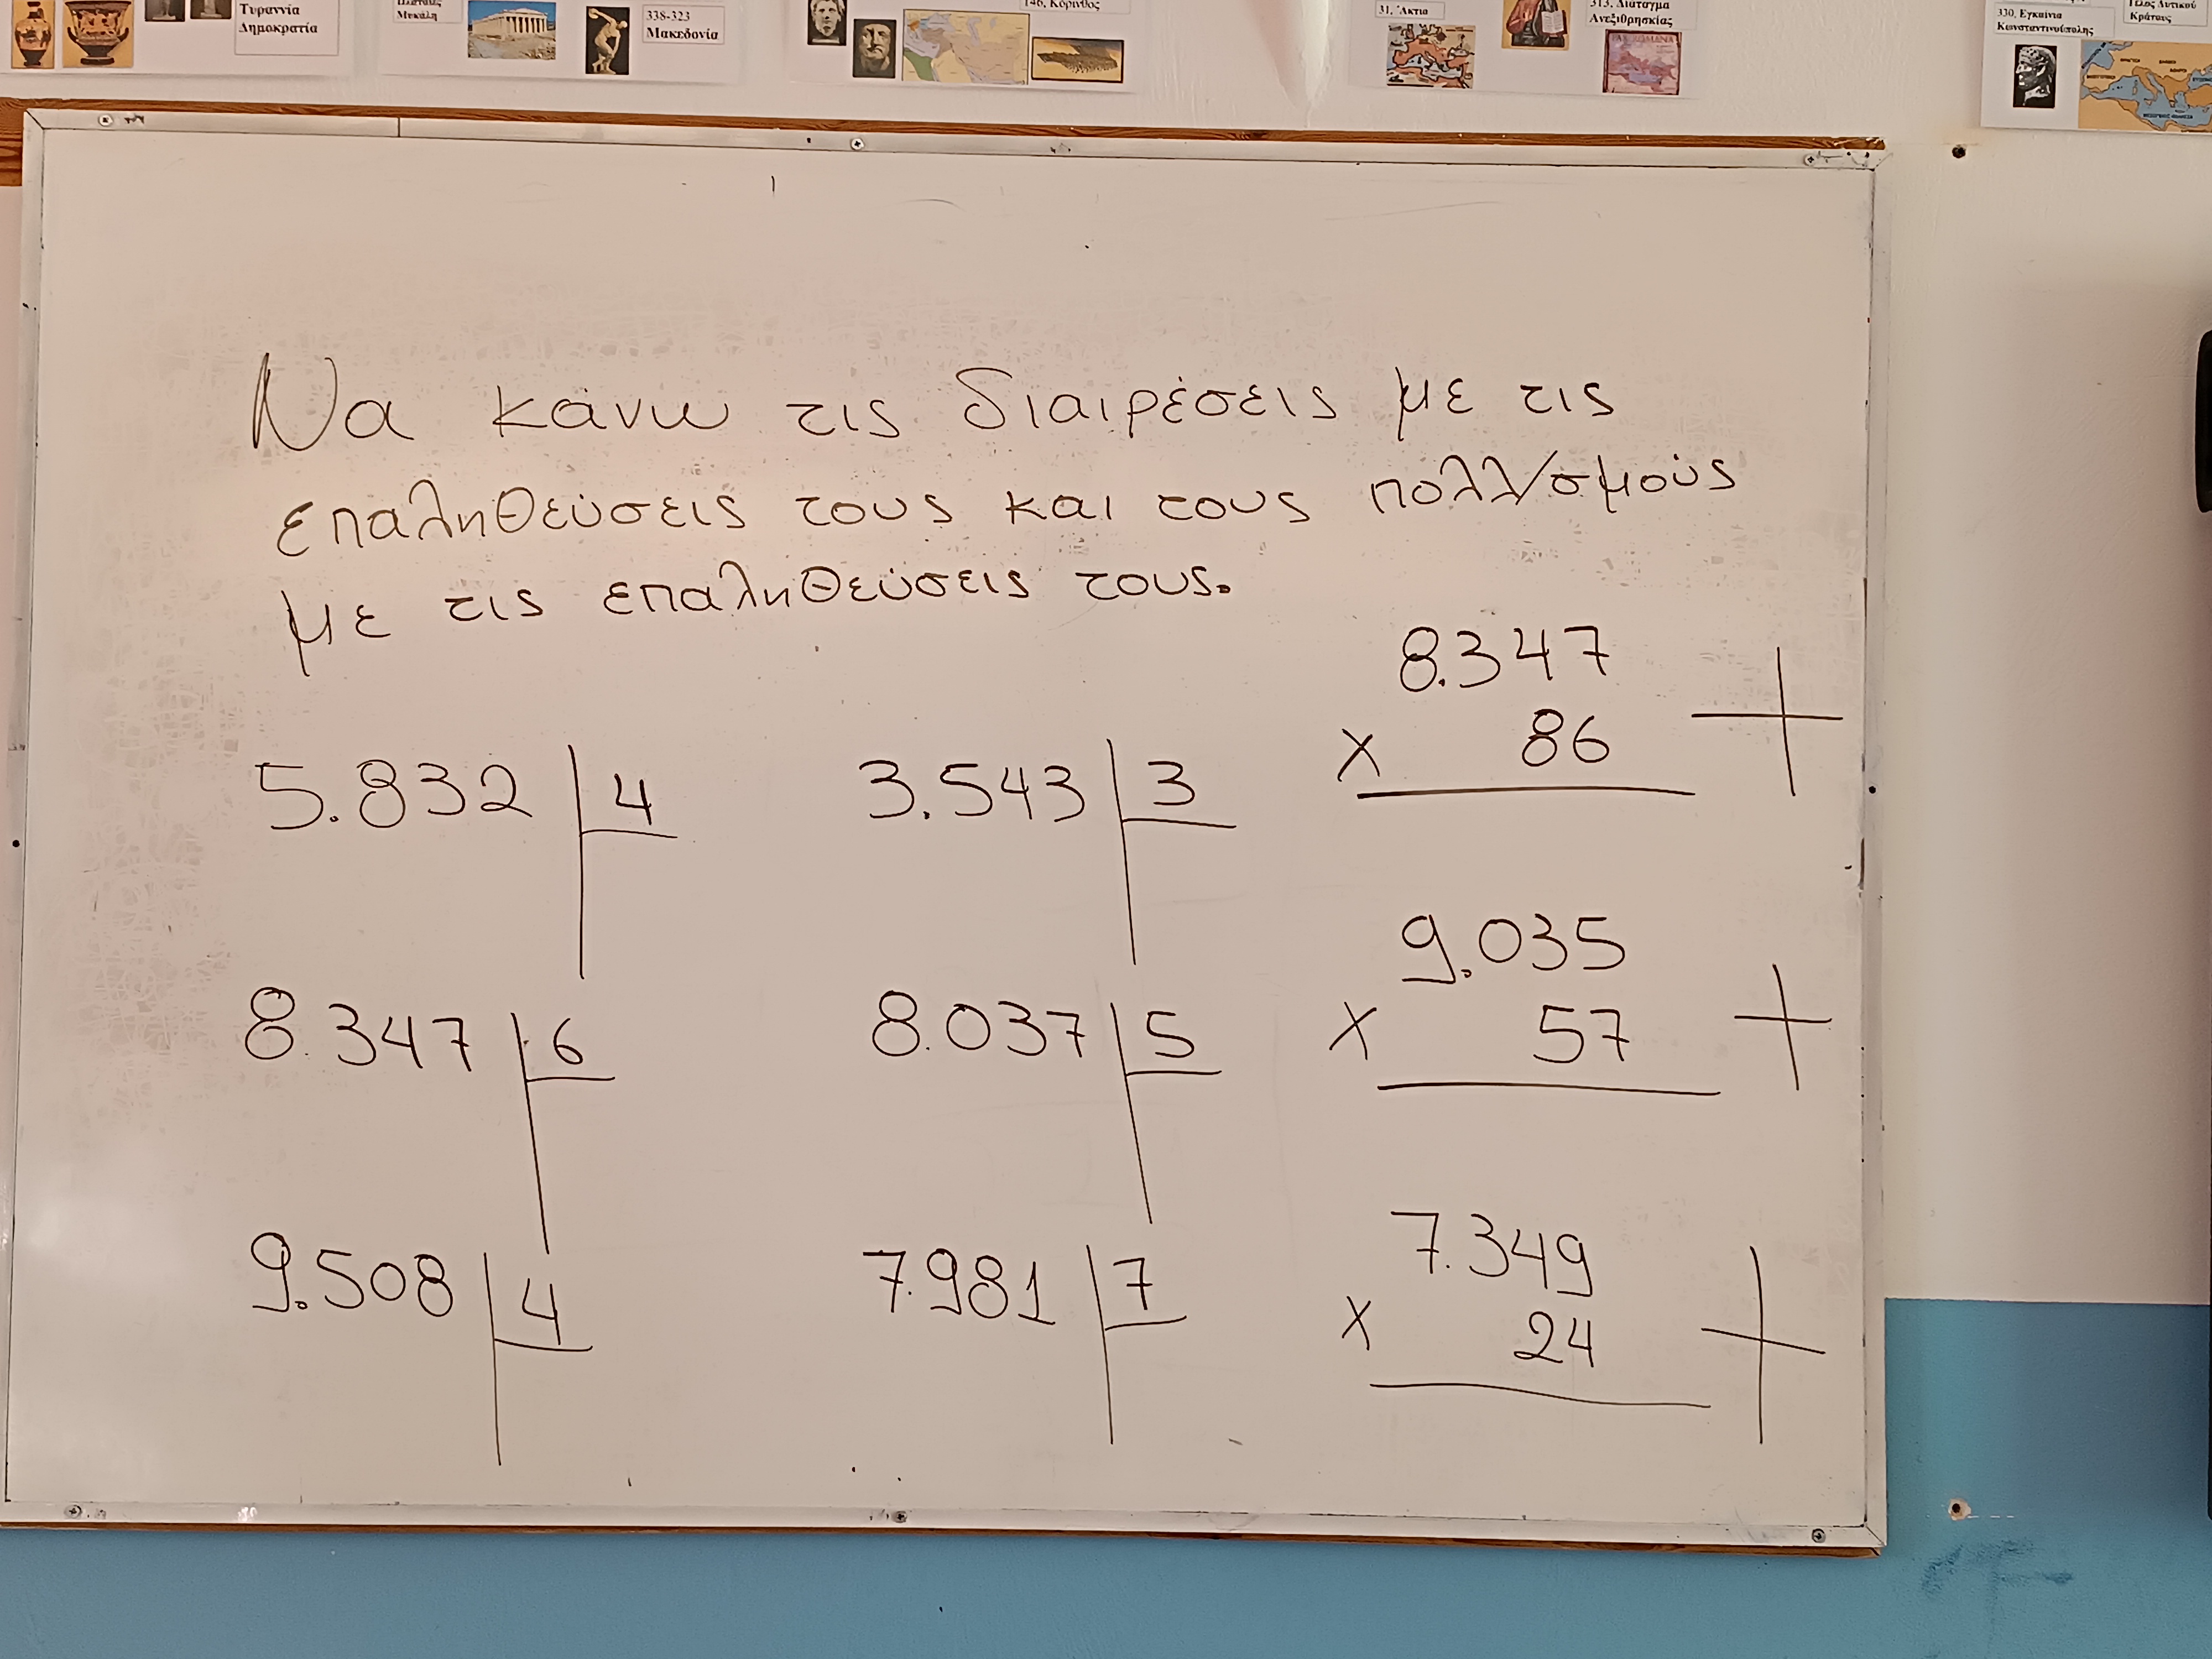 Τυραννία
Δημοκρατία
Μυκάλη
338-323
Μακεδονία
146, Κόρινθος
31, Άκτια
313, Διάταγμα
Ανεξιθρησκίας
330, Εγκαίνια
Κωνσταντινούπολης
Τέλος Δυτικού
Κράτους
Να κάνω τις διαιρέσεις με τις
επαληθεύσεις τους και τους πολλ/σμούς
με τις επαληθεύσεις τους.
5.832 4
3.543 3
8.347
x 86
8.347 6
8.037 5
9.035
x 57
9.508 4
7.981 7
7.349
x 24